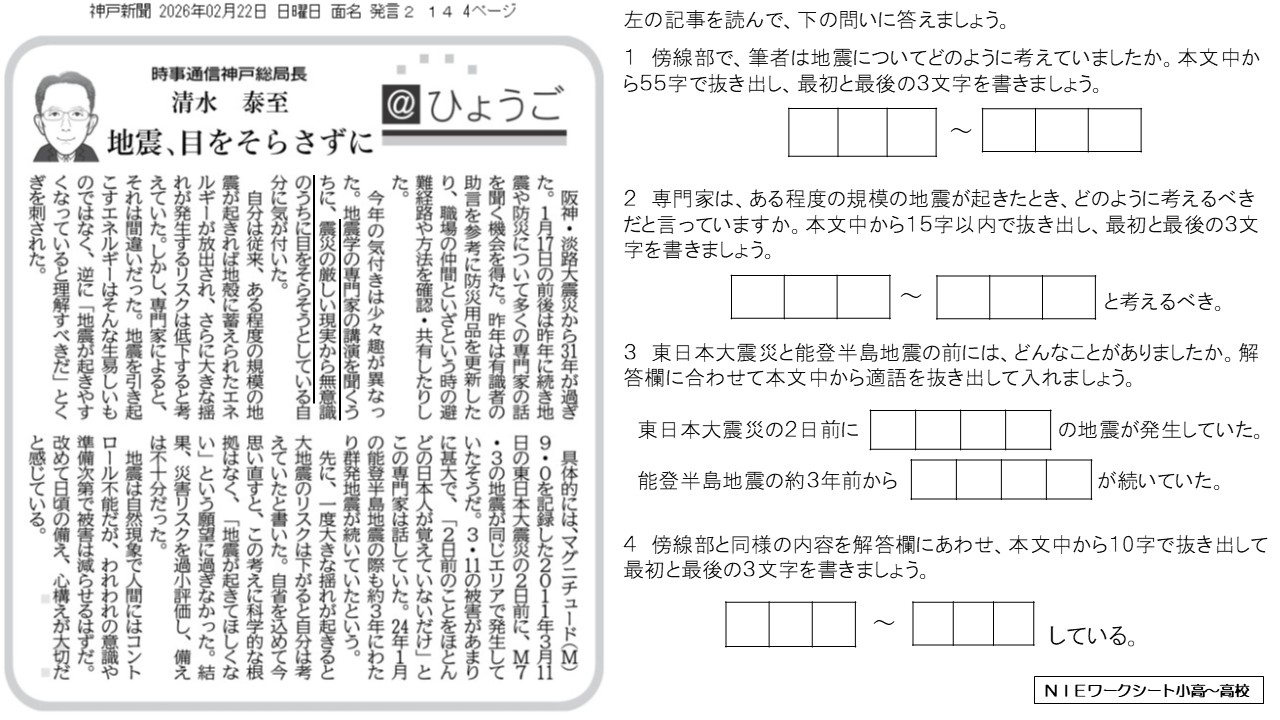 神戸新聞 2026年02月22日 日曜日 面名 発言２ １４ 4ページ
時事通信神戸総局長
清水　泰至
@ひょうご
地震、目をそらさずに
阪神・淡路大震災から31年が過ぎ
た。１月17日の前後は昨年に続き地
震や防災について多くの専門家の話
を聞く機会を得た。昨年は有識者の
助言を参考に防災用品を更新した
り、職場の仲間といざという時の避
難経路や方法を確認・共有したりし
た。
今年の気付きは少々趣が異なっ
た。地震学の専門家の講演を聞くう
ちに、震災の厳しい現実から無意識
のうちに目をそらそうとしている自
分に気が付いた。
自分は従来、ある程度の規模の地
震が起きれば地殻に蓄えられたエネ
ルギーが放出され、さらに大きな揺
れが発生するリスクは低下すると考
えていた。しかし、専門家によると、
それは間違いだった。地震を引き起
こすエネルギーはそんな生易しいも
のではなく、逆に「地震が起きやす
くなっていると理解すべきだ」とく
ぎを刺された。
具体的には、マグニチュード（Ｍ）
９・０を記録した２０１１年３月11
日の東日本大震災の２日前に、Ｍ７
・３の地震が同じエリアで発生して
いたそうだ。３・11の被害があまり
に甚大で、「２日前のことをほとん
どの日本人が覚えていないだけ」と
この専門家は話していた。24年１月
の能登半島地震の際も約３年にわた
り群発地震が続いていたという。
先に、一度大きな揺れが起きると
大地震のリスクは下がると自分は考
えていたと書いた。自省を込めて今
思い直すと、この考えに科学的な根
拠はなく、「地震が起きてほしくな
い」という願望に過ぎなかった。結
果、災害リスクを過小評価し、備え
は不十分だった。
地震は自然現象で人間にはコント
ロール不能だが、われわれの意識や
準備次第で被害は減らせるはずだ。
改めて日頃の備え、心構えが大切だ
と感じている。
左の記事を読んで、下の問いに答えましょう。
１　傍線部で、筆者は地震についてどのように考えていましたか。本文中か
ら55字で抜き出し、最初と最後の３文字を書きましょう。
～
２　専門家は、ある程度の規模の地震が起きたとき、どのように考えるべき
だと言っていますか。本文中から15字以内で抜き出し、最初と最後の３文
字を書きましょう。
～ と考えるべき。
３　東日本大震災と能登半島地震の前には、どんなことがありましたか。解
答欄に合わせて本文中から適語を抜き出して入れましょう。
東日本大震災の２日前に の地震が発生していた。
能登半島地震の約３年前から が続いていた。
４　傍線部と同様の内容を解答欄にあわせ、本文中から10字で抜き出して
最初と最後の３文字を書きましょう。
～ している。
ＮＩＥワークシート小高～高校